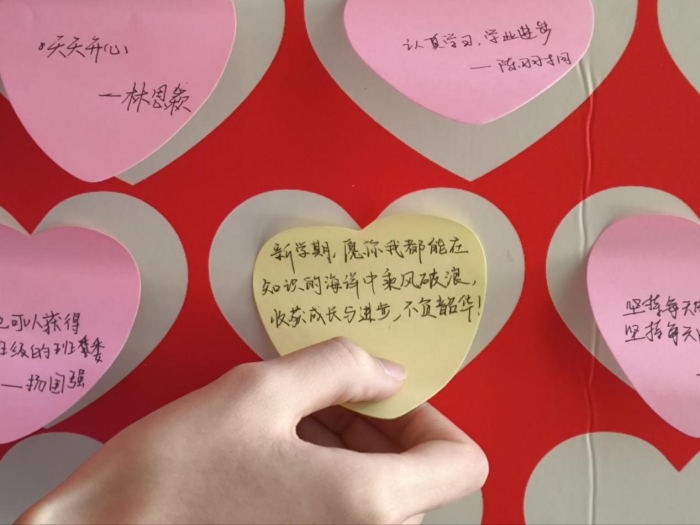 天天开心
—林恩颖
认真学习，学业进步
新学期，愿你我都能在
知识的海洋中乘风破浪，
收获成长与进步，不负韶华！
也可以获得
班级的班委
—杨国强
坚持每天
坚持每天